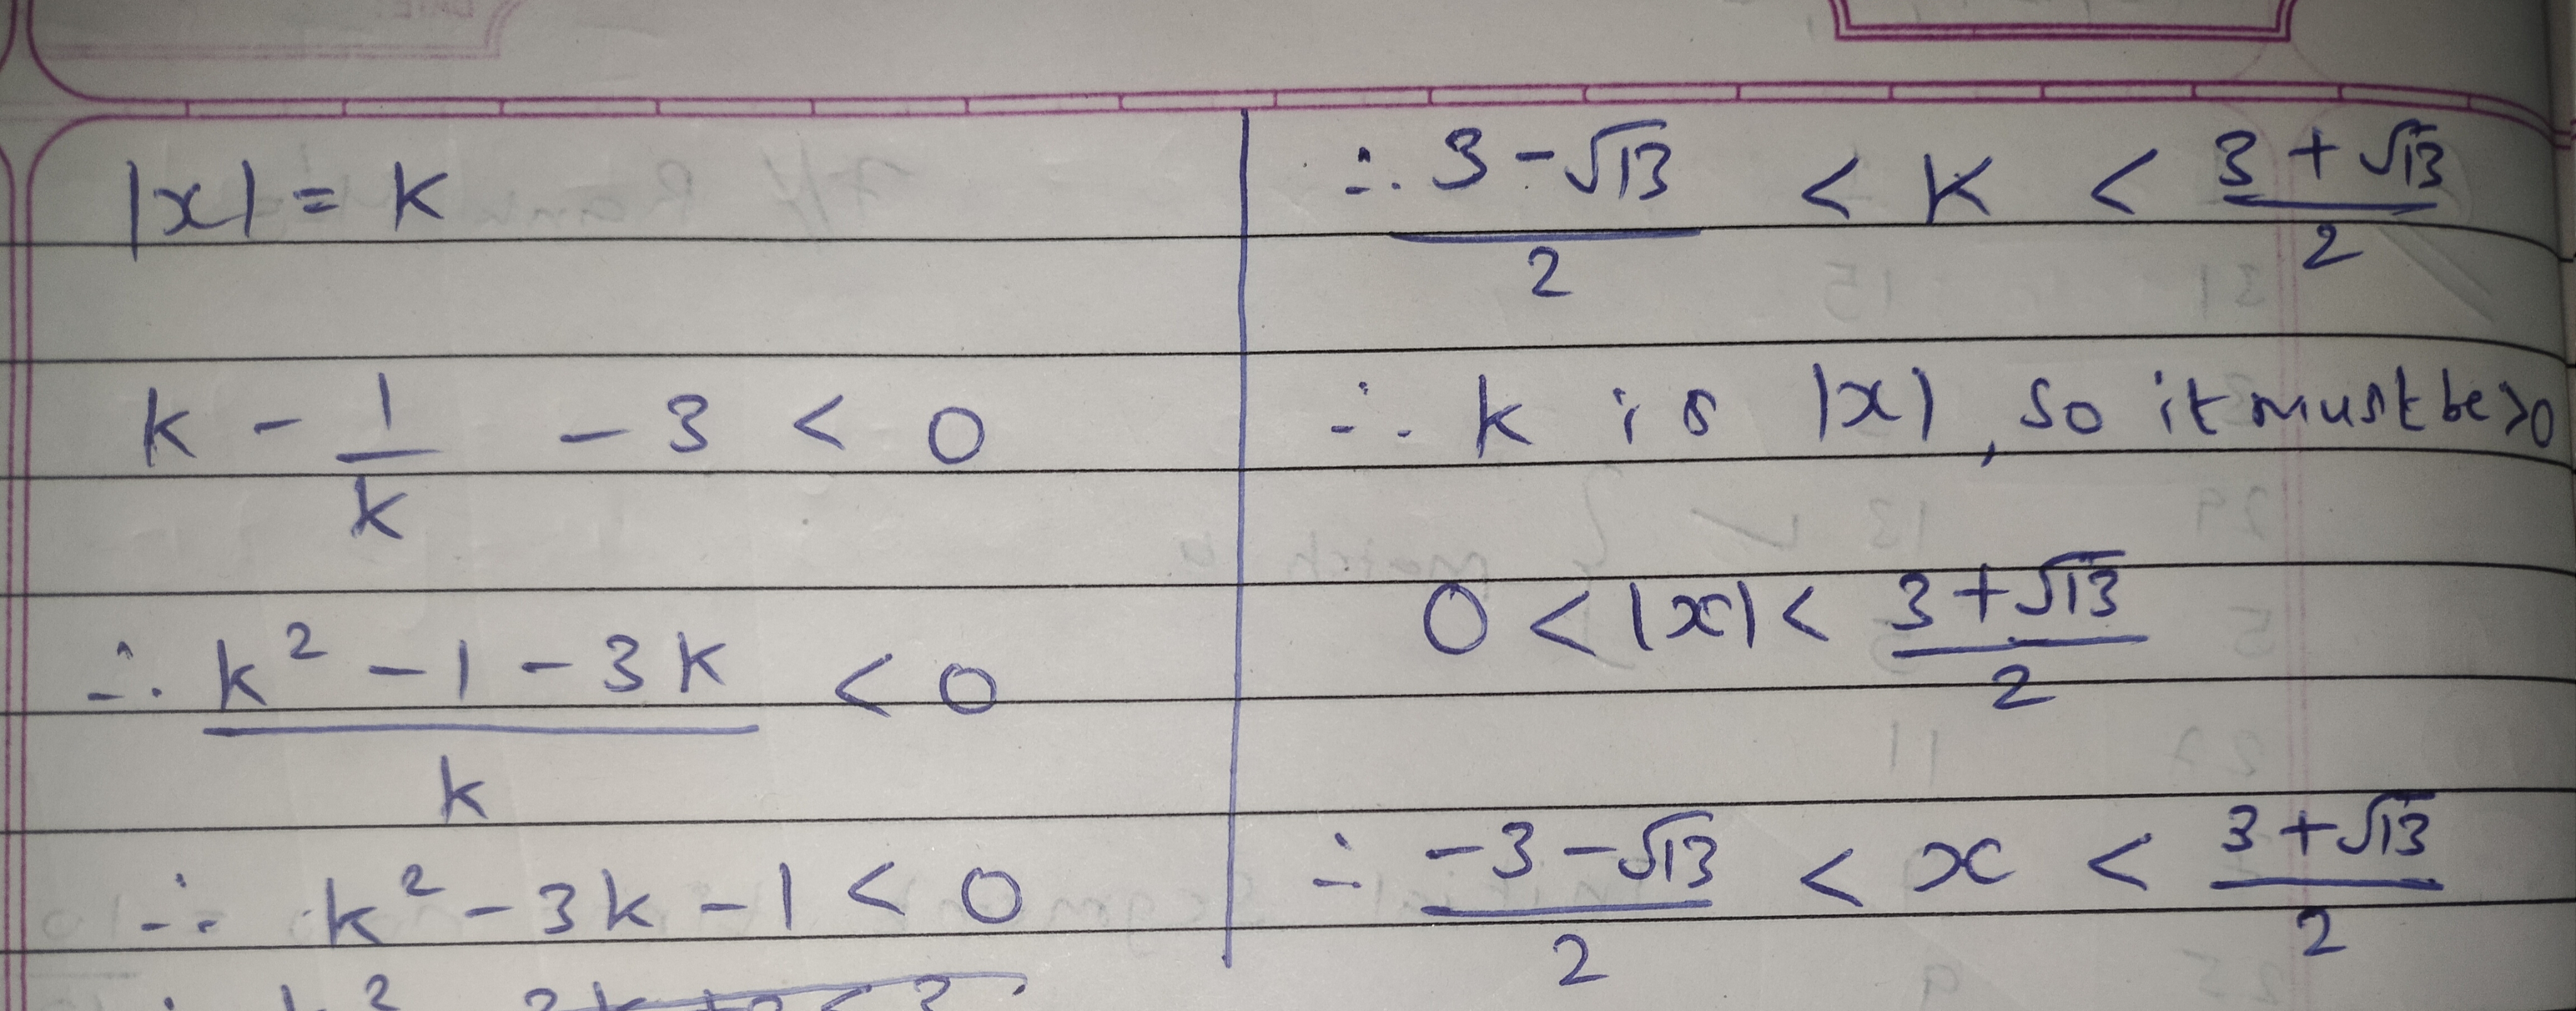 |x| = k
k - 1/k - 3 < 0
∴ (k² - 1 - 3k)/k < 0
∴ k² - 3k - 1 < 0
∴ (3 - √13)/2 < k < (3 + √13)/2
∴ k is |x|, so it must be >0
0 < |x| < (3 + √13)/2
∴ (-3 - √13)/2 < x < (3 + √13)/2